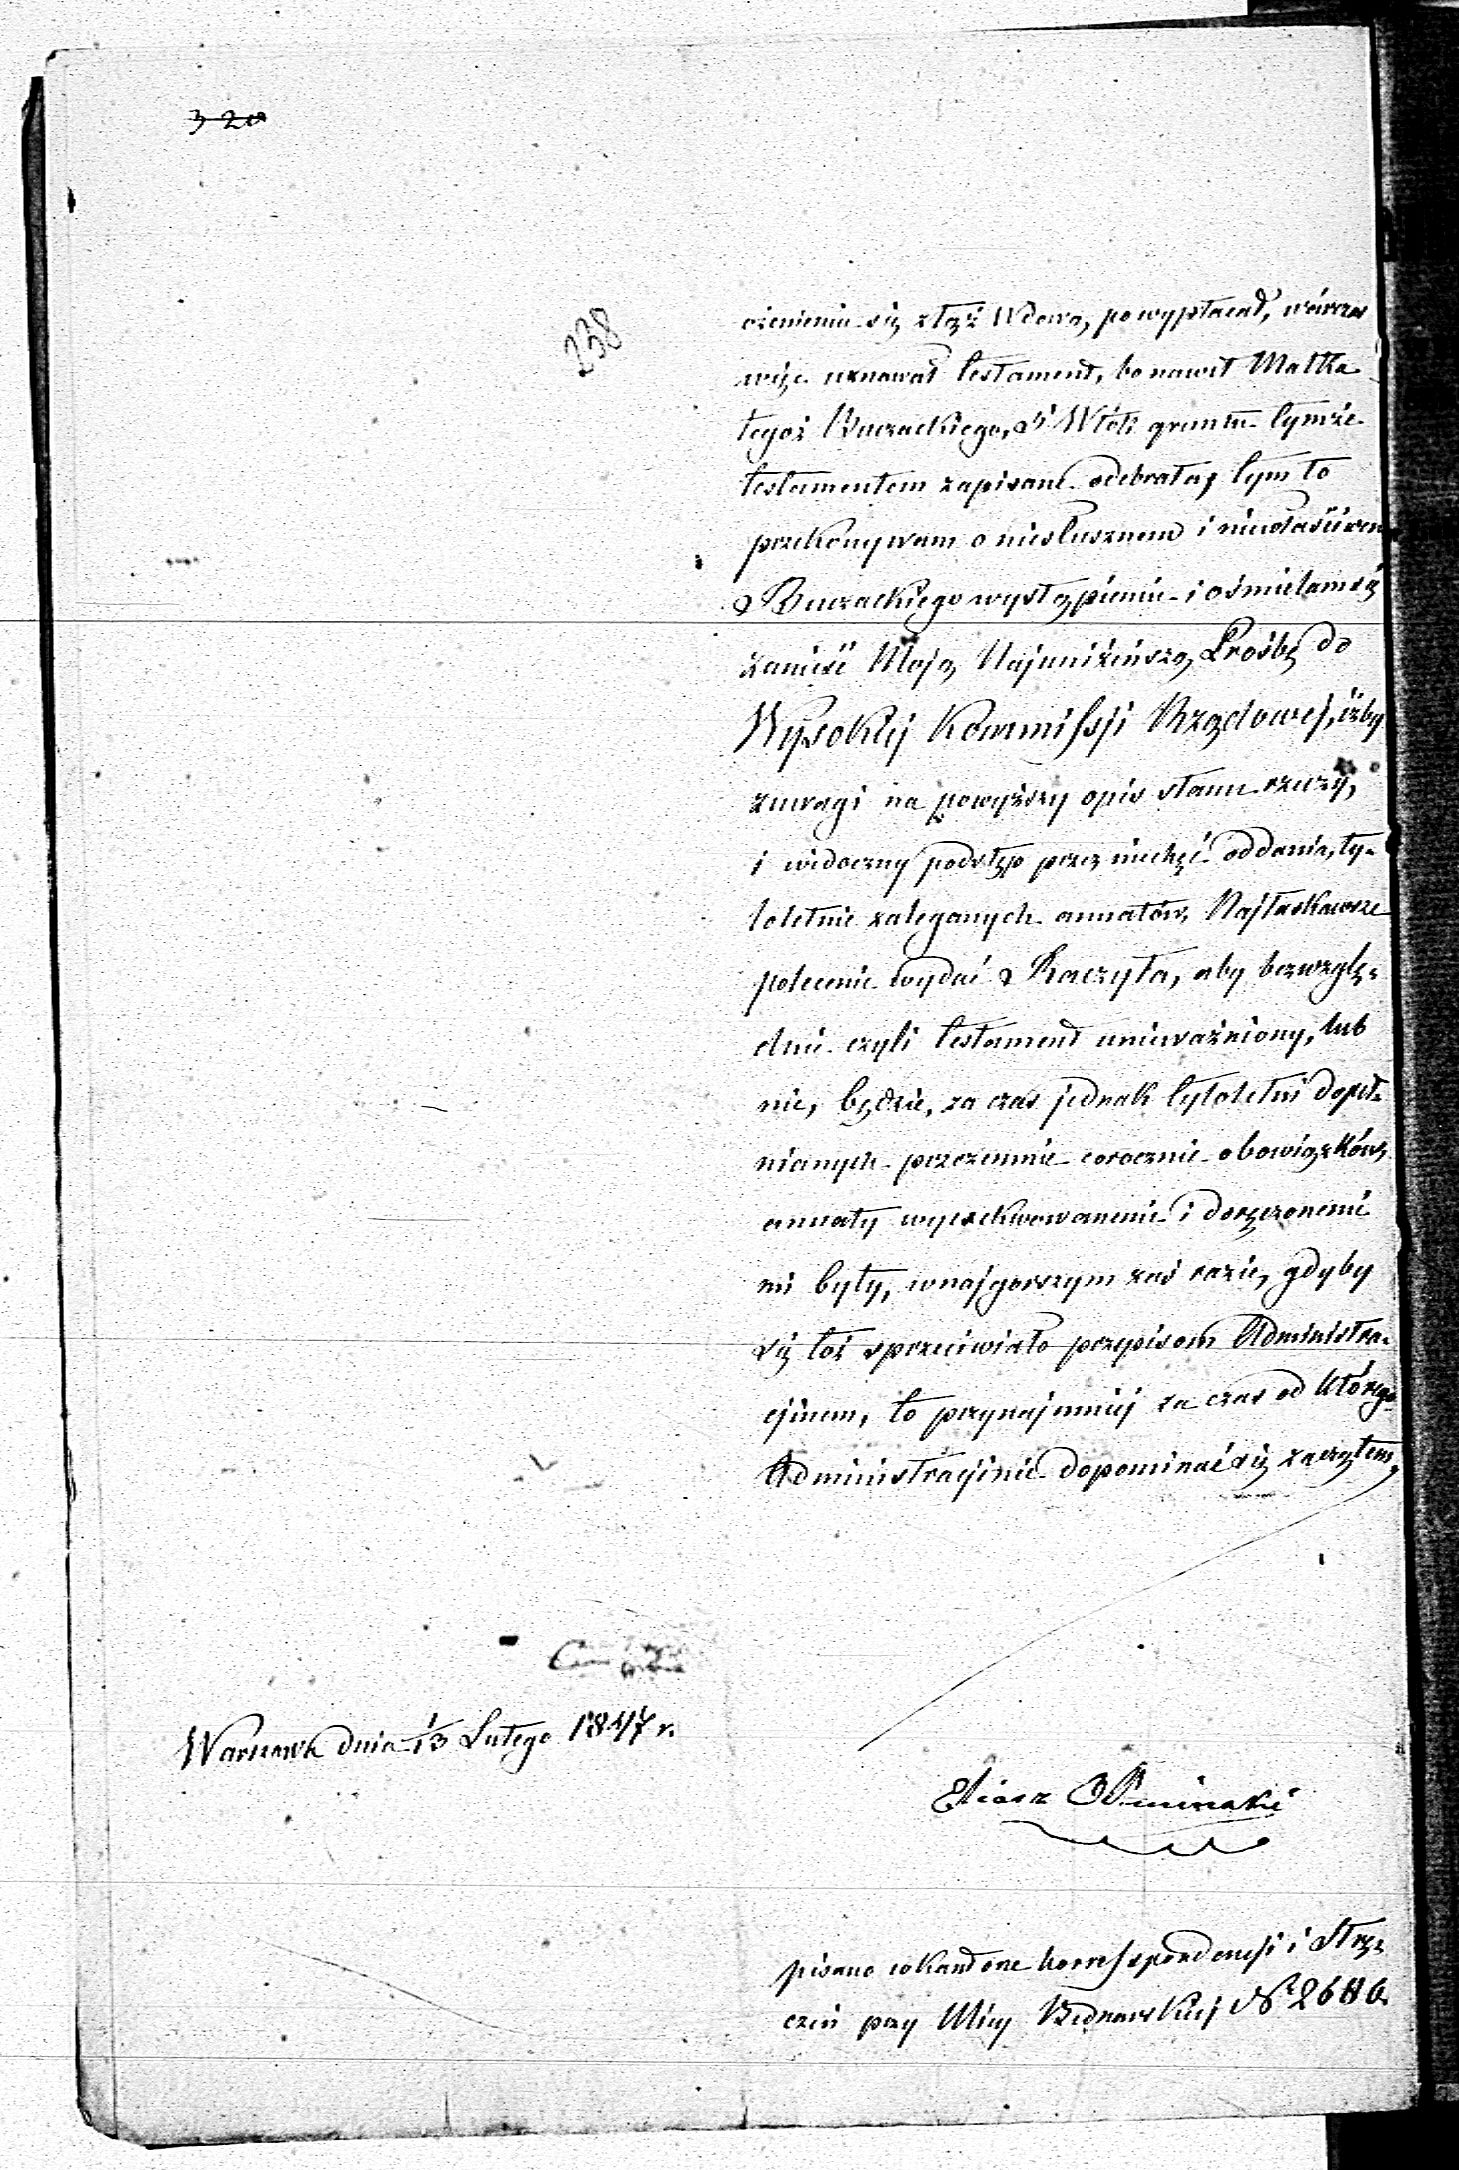 320
238
ożenieniu się z tąż Wdową, powypłacał, wówczas
więc uznawał testament, bo nawet Matka
tegoż Buczackiego, Włók gruntu tymże
testamentem zapisane odebrała, tym to
przekonywam o niesłusznem i niewłaściwem
Buczackiego wystąpieniu i ośmielam się
zanieść Moją Najuniżeńszą Prośbę do
Wysokiej Kommissji Rządowej, iżby
z uwagi na powyższy opis stanu rzeczy,
i widoczny podstęp przez niechęć oddania, ty-
loletnie zaleganych annatów, Najłaskawsze
polecenie wydać Raczyła, aby bezwzglę-
dnie czyli testament unieważniony, lub
nie, będzie, za czas jednak tyloletni dopeł-
nianych przezemnie corocznie obowiązków,
annaty wyexekwowanemi i doręczonemi
mi były, w najgorszym zaś razie, gdyby
się toż sprzeciwiało przepisom Administra-
cjinem, to przynajmniej za czas od którego
Administracjinie dopominać się zacząłem,
Warszawa dnia 1/13 Lutego 1847 r.
Eliasz
pisano w Kantorze korrespondencji i Strę-
czeń przy Ulicy Bednarskiej Nr 2686.